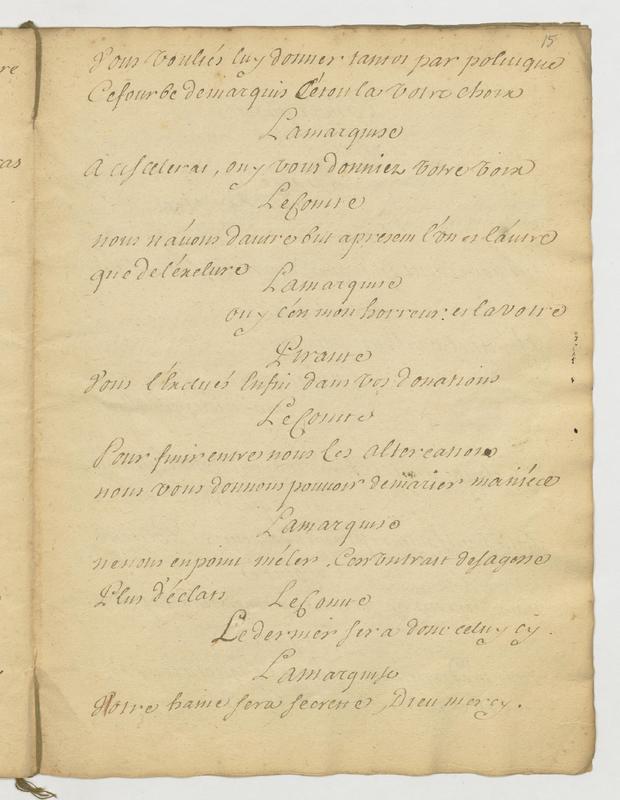 15
Vous vouliés luy donner tantot par politique
Ce fourbe de marquis C'étoit la votre choix
La marquise
A ce scelerat, ouy vous donniez votre voix
Le Comte
nous n'avons d'autre but apresent l'un et l'autre
que de l'exclure
La marquise
ouy c'en mon horreur: et la votre
Pirante
Vous l'Excluës Enfin dans vos donations
Le Comte
Pour finir entre nous les altercations
nous vous donnons pouvoir de marier ma niéce
La marquise
ne nous en point mêler.
Plus d'éclats
Le Comte
Le dernier sera donc celuy cy.
La marquise
Notre haine sera secrette, Dieu mercy.
re
as